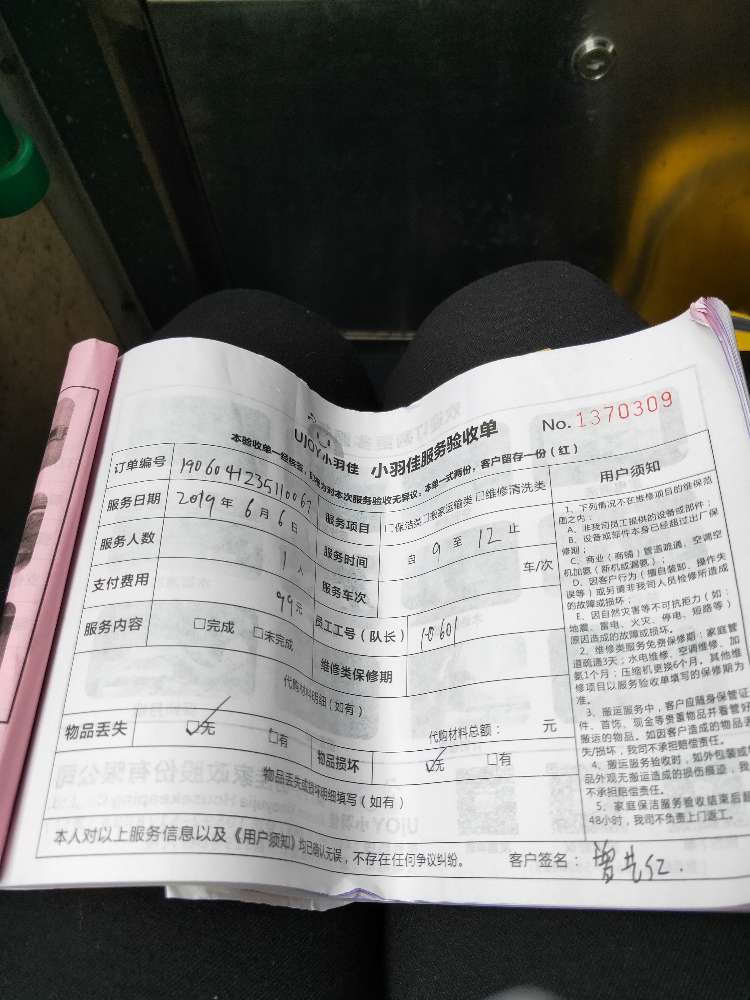 UJOY小羽佳 小羽佳服务验收单
No. 1370309
本验收单一经核签，均视为对本次服务验收无异议，本单一式两份，客户留存一份（红）
订单编号 1906041235110067
服务项目 □保洁类□搬家运输类 □维修清洗类
服务日期 2019年 6月 6日
服务时间 自 9 至 12 止
服务人数 1 人
服务车次 车/次
支付费用 99元
员工工号（队长） 18601
服务内容 □完成 □未完成
维修类保修期
代购材料明细（如有）
代购材料总额： 元
物品丢失 □无 □有
物品损坏 □无 □有
物品丢失或损坏明细填写（如有）
本人对以上服务信息以及《用户须知》均已确认无误，不存在任何争议纠纷。
客户签名：
用户须知
1、下列情况不在维修项目的维保范
围之内：
A、非我司员工提供的设备或部件；
B、设备或部件本身已经超过出厂保
修期；
C、商业（商铺）管道疏通、空调空
机加氨（新机或漏氨）；
D、因客户行为（擅自装卸、操作失
误等）或另请非我司人员检修所造成
的故障或损坏；
E、因自然灾害等不可抗拒力（如：
地震、雷电、火灾、停电、短路等）
原因造成的故障或损坏。
2、维修类服务免费保修期：家庭管
道疏通3天；水电维修、空调维修、加
氨1个月；压缩机更换6个月，其他维
修项目以服务验收单填写的保修期为
准。
3、搬运服务中，客户应随身保管证
件、首饰、现金等贵重物品并看管好
搬运的物品。如因客户造成的物品丢
失/损坏，我司不承担赔偿责任。
4、搬运服务验收时，如外包装或
品外观无搬运造成的损伤痕迹，我
不承担赔偿责任。
5、家庭保洁服务验收结束后超
48小时，我司不负责上门返工。